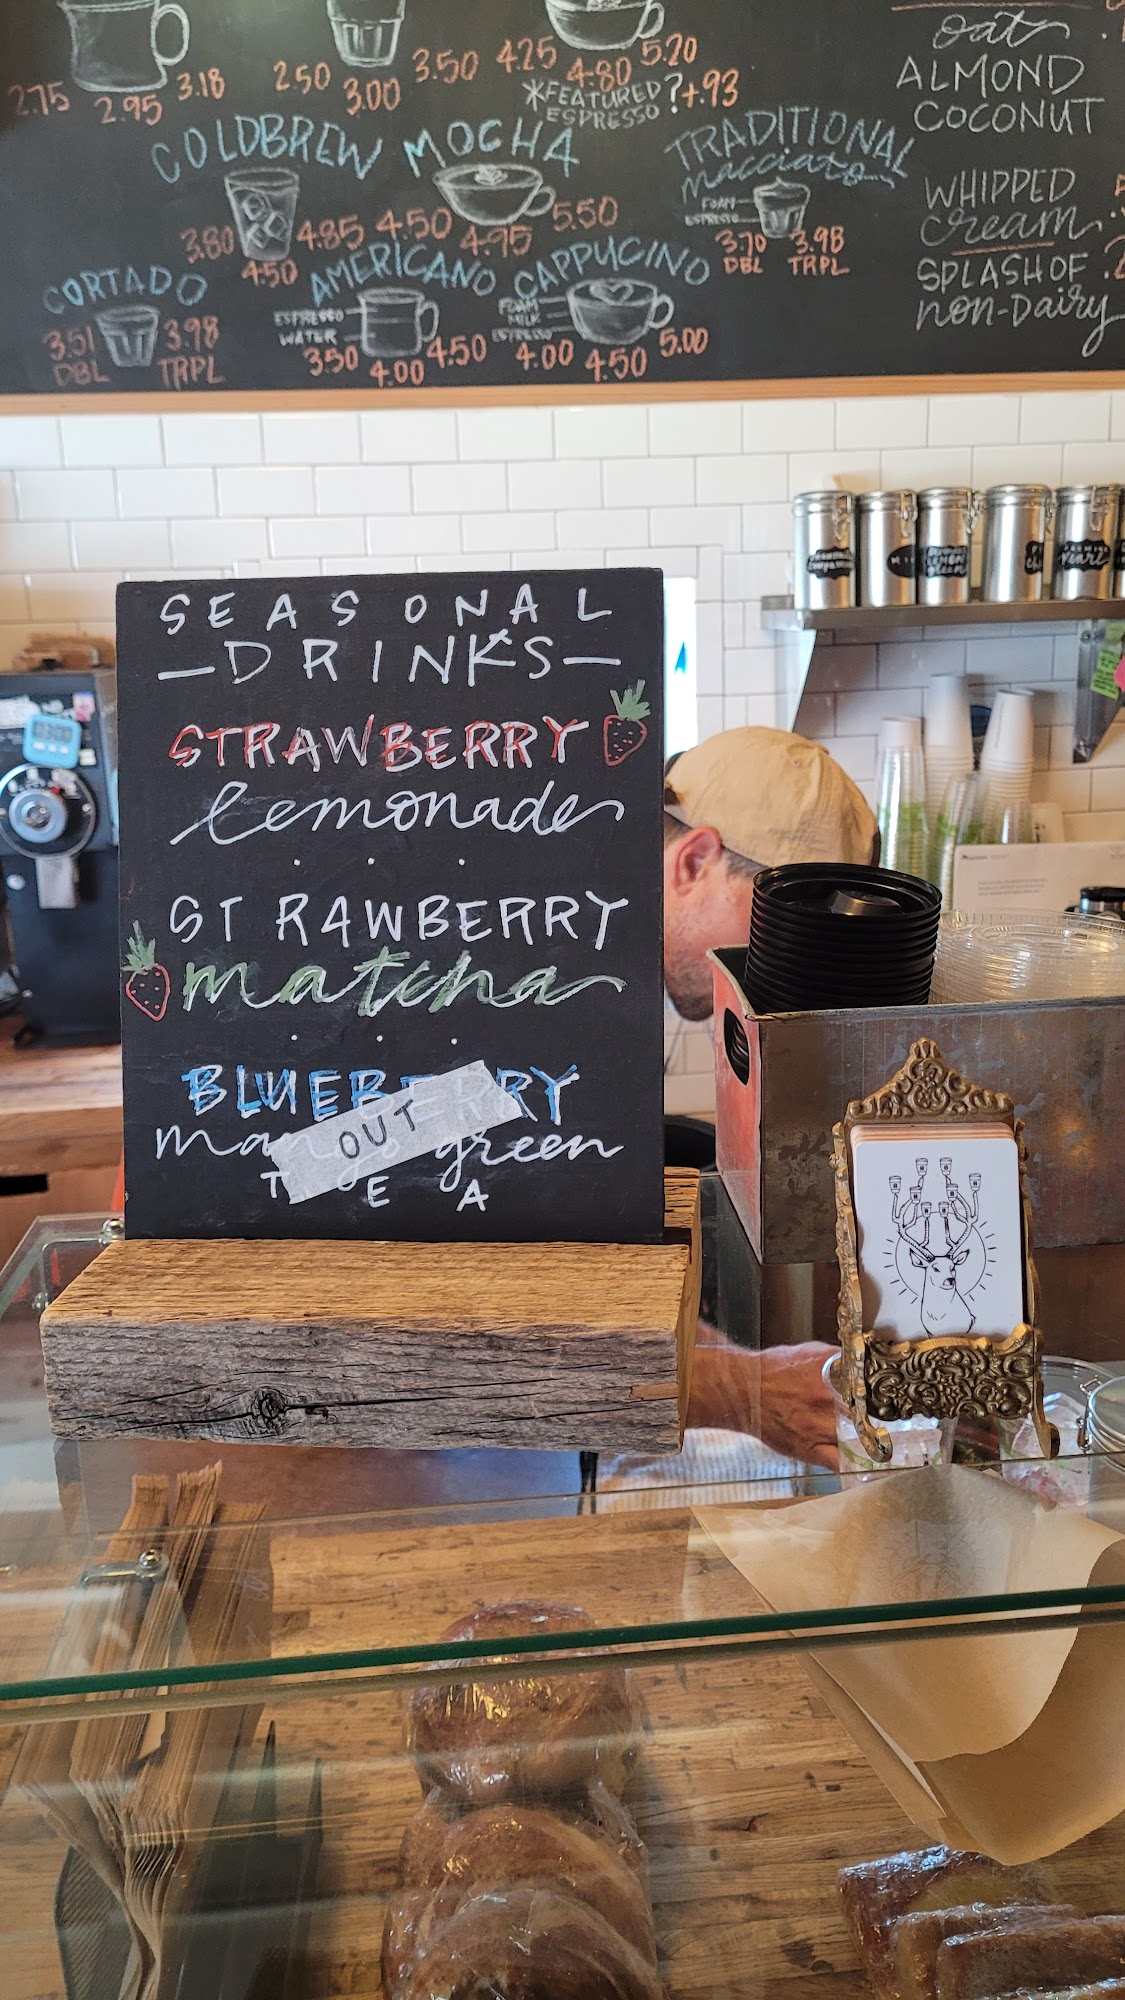 2.75 2.95 3.18
2.50 3.00 3.50
4.25 4.80 5.20
*FEATURED ESPRESSO ?+.93
COLDBREW
3.80 4.50 4.85
MOCHA
4.50 4.95 5.50
TRADITIONAL
macciato
FOAM
ESPRESSO
3.70 3.98
DBL TRPL
CORTADO
3.51 3.98
DBL TRPL
AMERICANO
ESPRESSO
WATER
3.50 4.00 4.50
CAPPUCINO
FOAM
MILK
ESPRESSO
4.00 4.50 5.00
oat
ALMOND
COCONUT
WHIPPED
cream
SPLASH OF
non-Dairy
SEASONAL
—DRINKS—
STRAWBERRY
lemonade
STRAWBERRY
matcha
BLUEBERRY
mango green
OUT
TEA